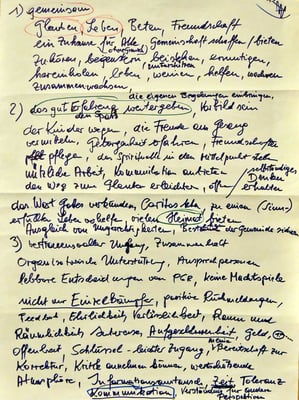 1) gemeinsam
Glauben, Leben, Beten, Freundschaft
ein Zuhause für Alle, Gemeinschaft schaffen / bieten
Zuhören, begeistern, beistehen, ermutigen,
unterstützen
hereinholen, leben, weinen, helfen, wachsen
zusammenwachsen
die eigenen Begabungen einbringen
2) das gut Erfahrene weitergeben, Vorbild sein
den Spaß
der Kinder wegen, die Freude am Gesang
vermitteln, Geborgenheit erfahren, Freundschaften
pflege, den in den Mittelpunkt
Arbeit, Kommunikation anbieten
selbständiges Denken
den Weg zum Glauben erleichtern, offen erhalten
das Wort Gottes verkünden, Caritas, zu einem (Sinn-)
erfüllten Leben verhelfen, vielen Heimat bieten
Ausgleich von Ungerechtigkeiten, der Gemeinde sichern
3) vertrauensvoller Umgang, Zusammenhalt
Organisatorische Unterstützung, Ansprechpersonen
lebbare Entscheidungen vom PGR, keine Machtspiele
nicht nur Einzelkämpfer, positive Rückmeldungen,
Feedback, Ehrlichkeit, Verlässlichkeit, Raum und
Räumlichkeit, Interesse, Aufgeschlossenheit, Geld,
Offenheit, Schlüssel - leichter Zugang, Bereitschaft zur
meine
Korrektur, Kritik annehmen können, wertschätzende
Atmosphäre, Informationsaustausch, Zeit, Toleranz
Kommunikation Verständnis für andere
Perspektiven